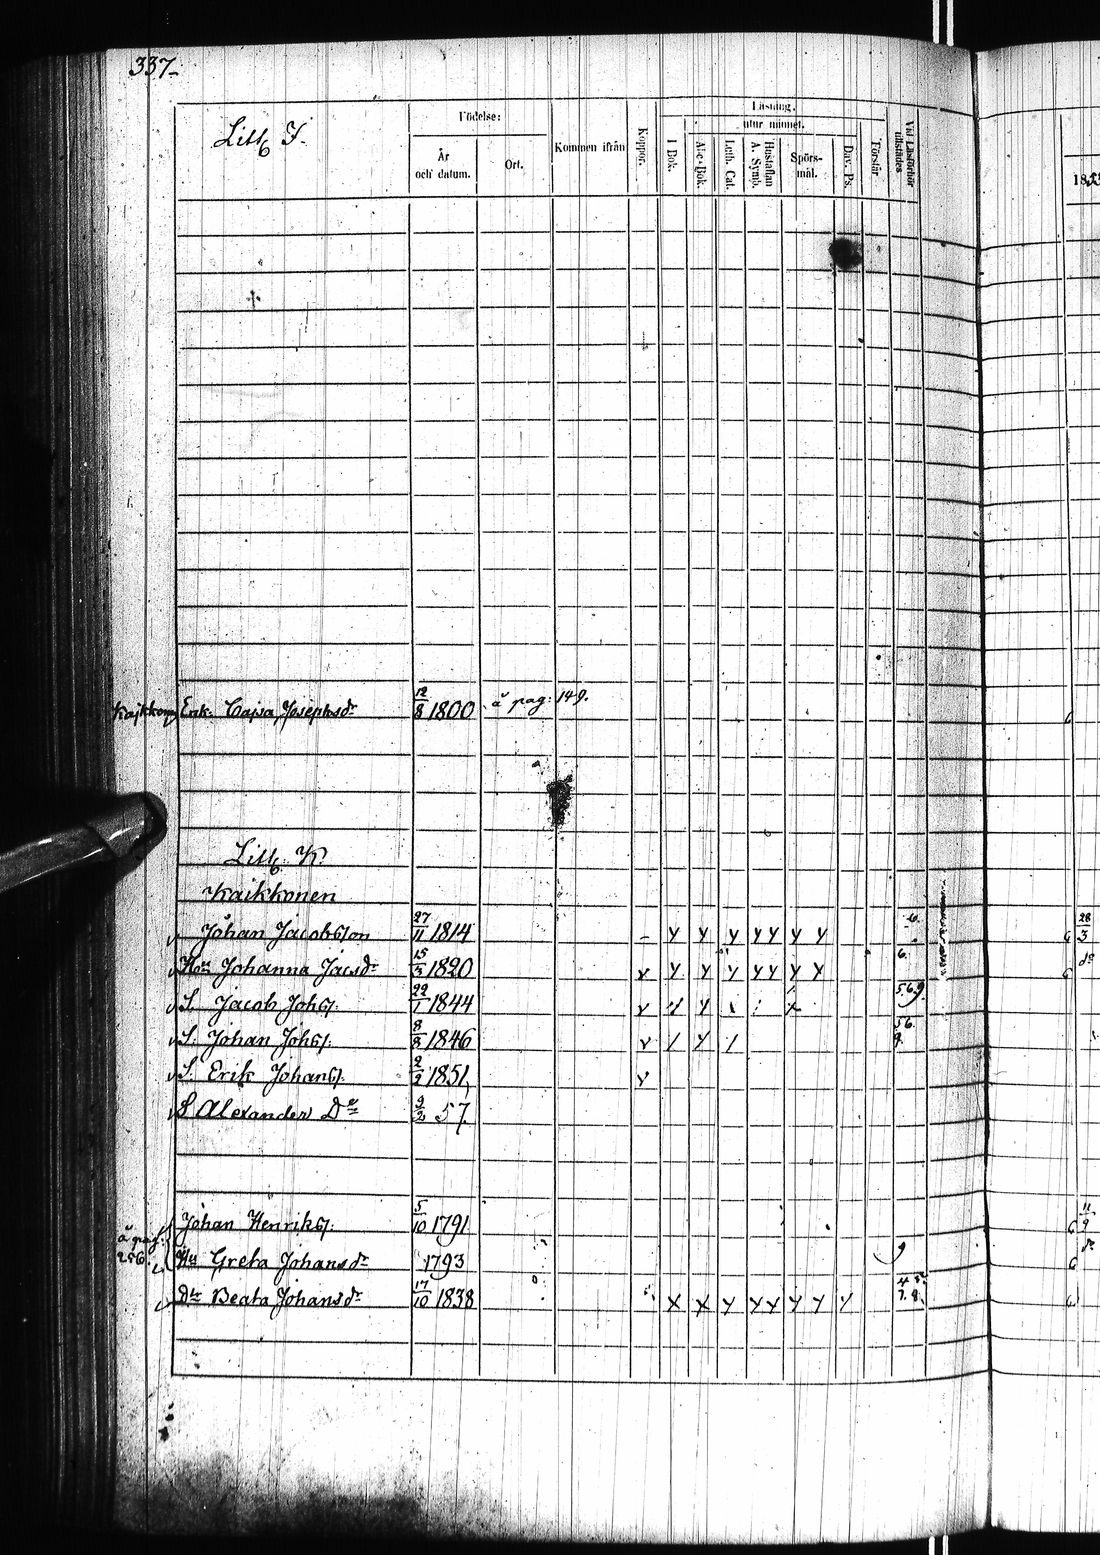 337.
Litt. I.
Födelse:
År och datum.
Ort.
Kommen ifrån
Koppor.
Läsning.
utur minnet.
I Bok.
Abc-Bok.
Luth. Cat.
Hustaflan A. Symb.
Spörs-mål.
Dav. Ps.
Förstår
Vid Läsförhör tillstädes
Kajkkonen Enk. Cajsa Josephsdr 12/8 1800 å pag: 149.
Litt. K.
Kaikkonen
Johan Jacobsson 27/11 1814 6. 28/3
Hu Johanna Jacsdr 15/5 1820 6. do
S. Jacob Johss. 22/1 1844 569.
S. Johan Johss. 8/8 1846 56. 9.
S. Erik Johanss. 2/2 1851,
S Alexander Do 9/2 57.
Johan Henrikss. 5/10 1791 11/9
å pag: 256.
Hu Greta Johansdr 1793 9 do
Dtr Beata Johansdr 17/10 1838 4 5. 7. 8.